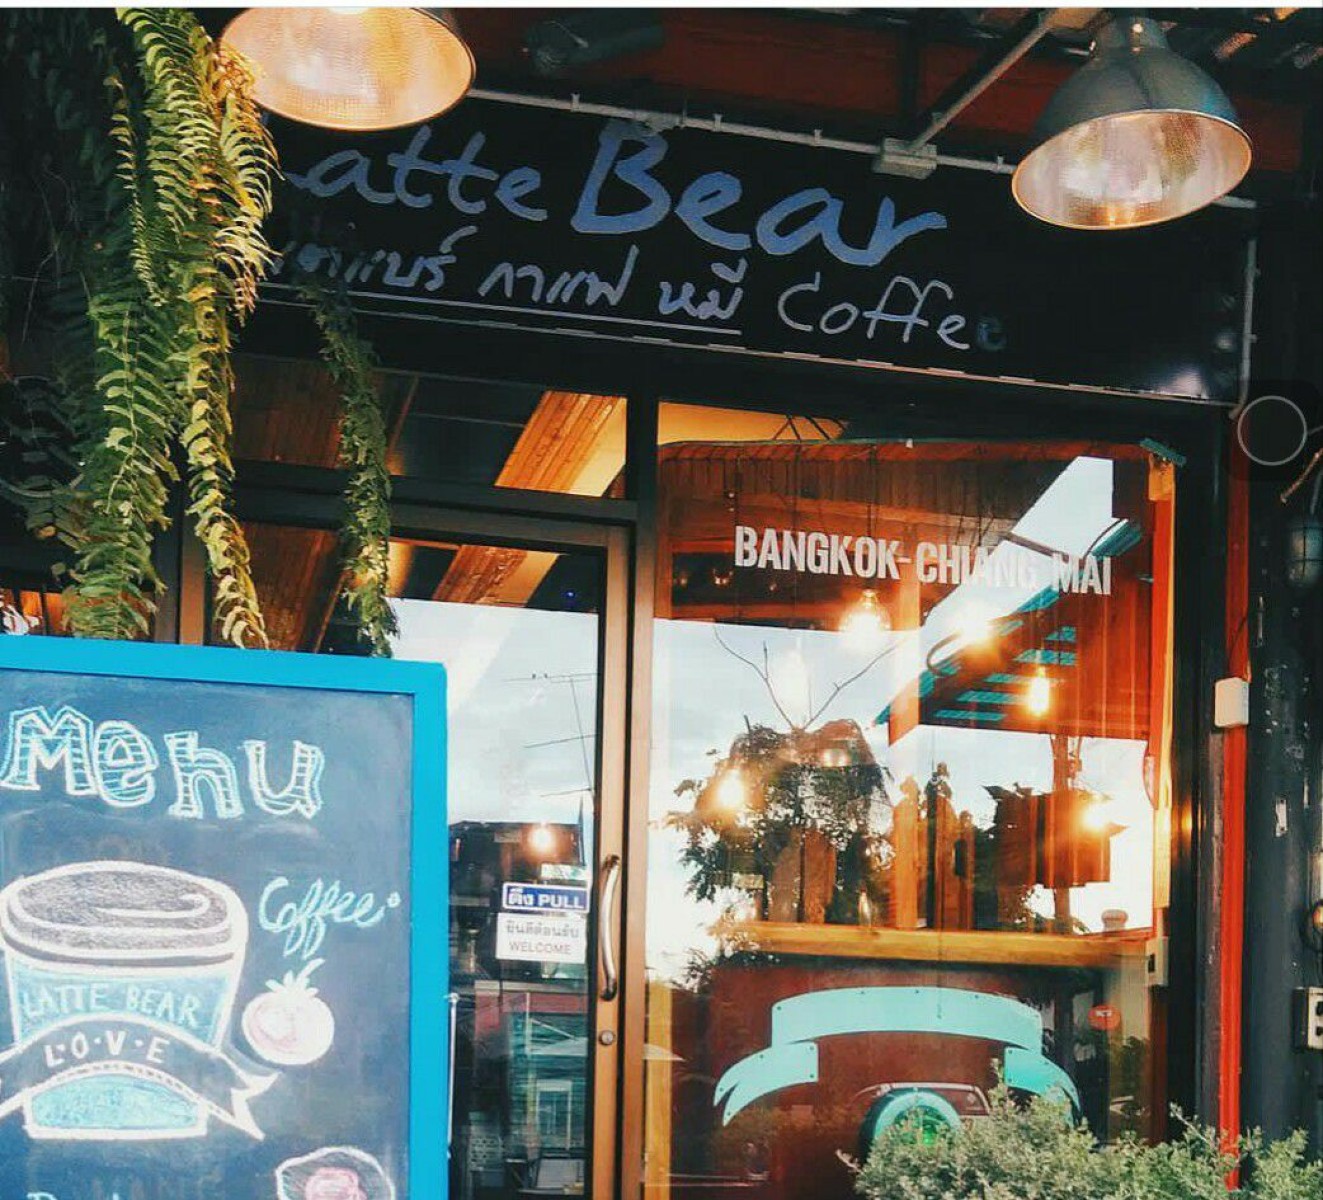 Latte Bear
ลาเต้แบร์ กาแฟ หมี Coffee
BANGKOK-CHIANG MAI
Menu
Coffee
LATTE BEAR
L·O·V·E
ดึง PULL
ยินดีต้อนรับ
WELCOME